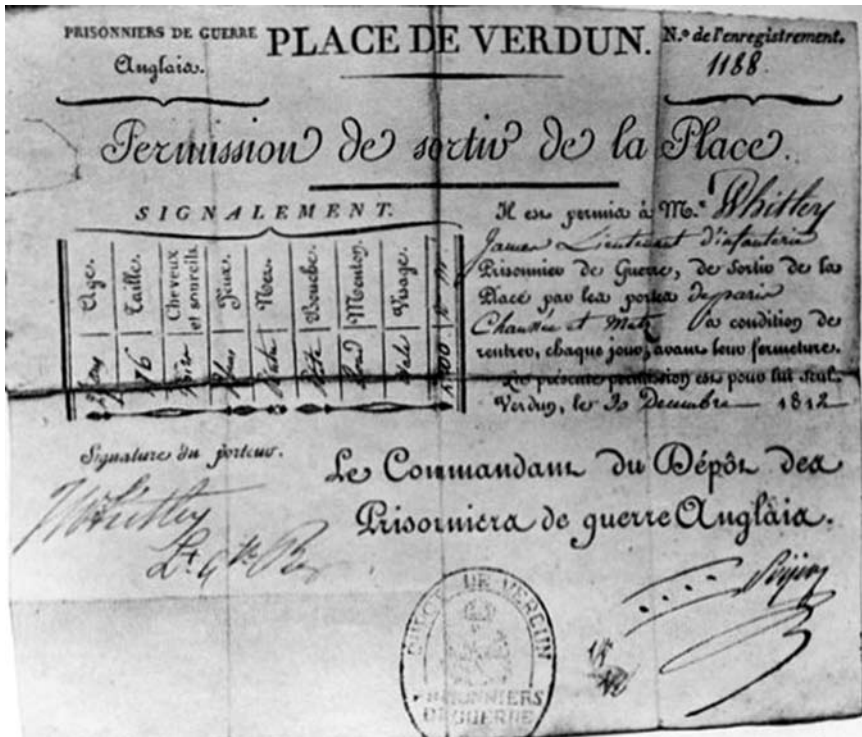 PRISONNIERS DE GUERRE
Anglais.
PLACE DE VERDUN.
N.º de l'enregistrement.
1188.
Permission de sortir de la Place.
SIGNALEMENT.
Age.
Taille.
Cheveux et sourcils.
Yeux.
Nez.
Bouche.
Menton.
Visage.
Il est permis à M.r Whitley
James Lieutenant d'infanterie
Prisonnier de Guerre, de sortir de la
Place par les portes de paris
Chaussée et Metz à condition de
rentrer, chaque jour, avant leur fermeture.
La présente permission est pour lui seul.
Verdun, le 30 Decembre 1812
Signature du porteur.
JWhitley
Lt. 9th
Le Commandant du Dépôt des
Prisonniers de guerre Anglais.
DÉPOT DE VERDUN
PRISONNIERS
DE GUERRE